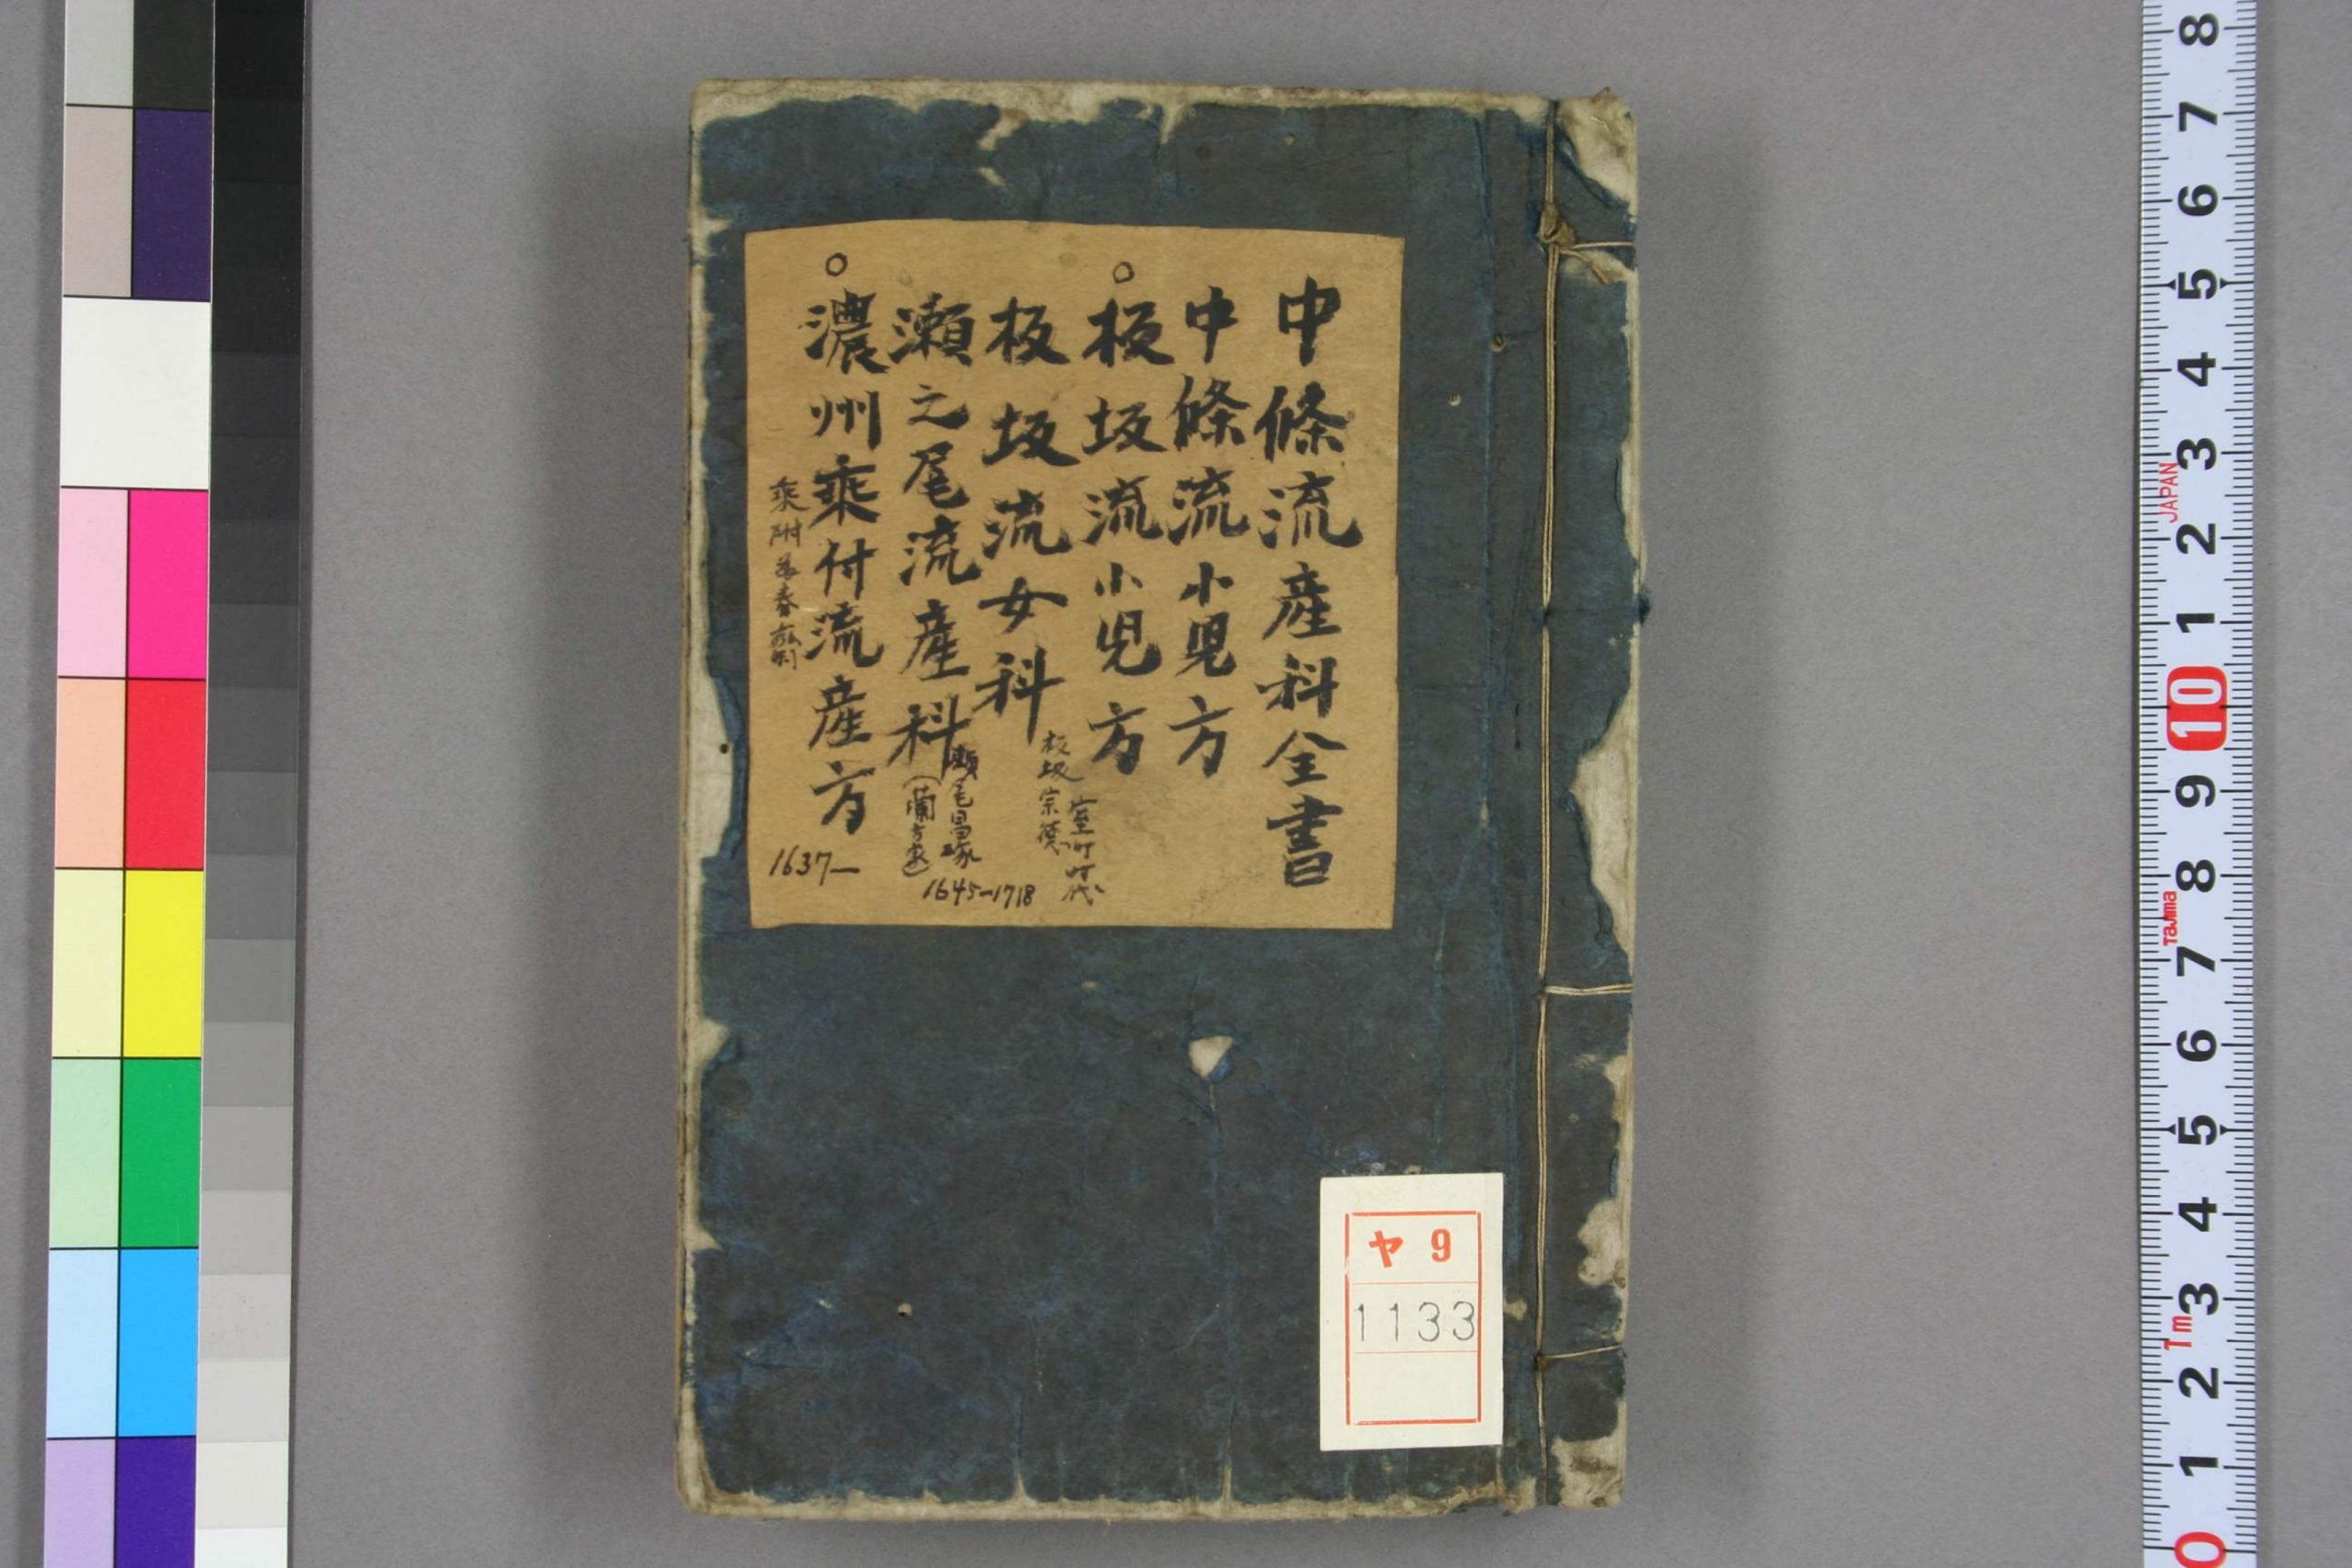 中條流産科全書
中條流小児方
○板坂流小児方
板坂流女科
板坂宗德
室町時代
瀬之尾流産科
瀬尾昌琢
(蘭方医)
1645-1718
○濃州乘付流産方
乘附
春
1637-
ヤ 9
1133
8
7
6
5
4
3
JAPAN
2
1
10
9
8
Tajima
7
6
5
4
3
1m
2
1
0